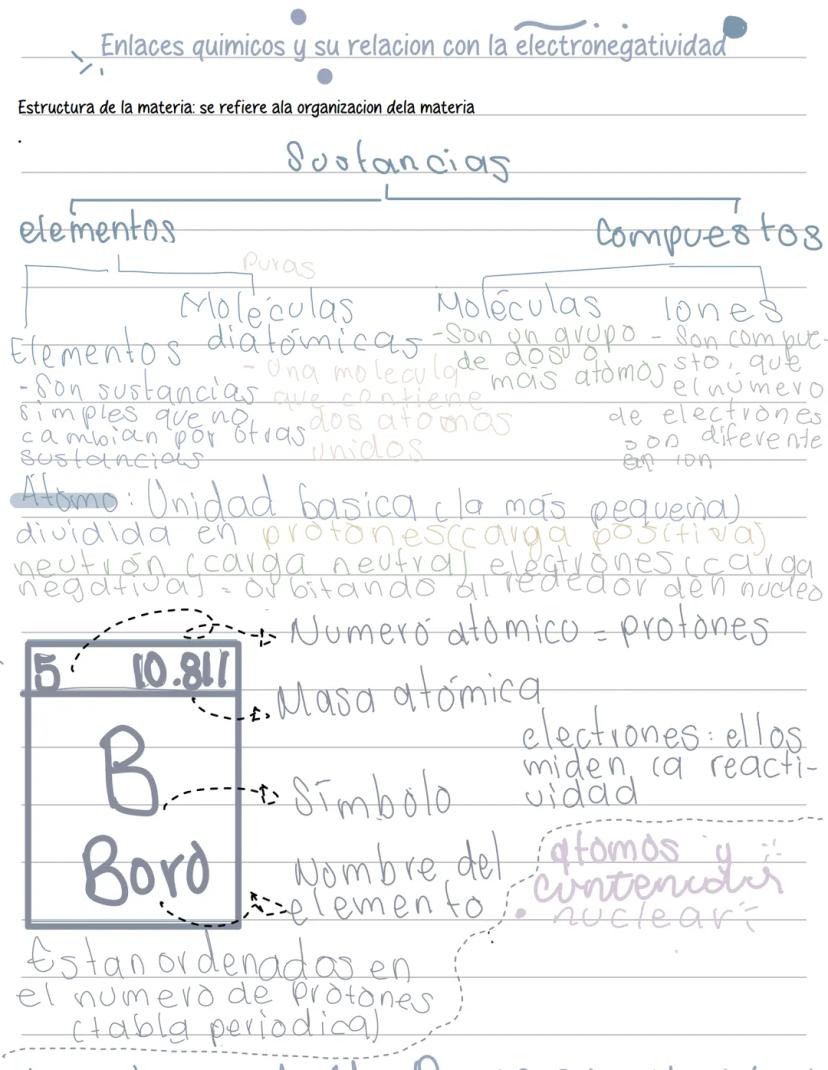 Enlaces quimicos y su relacion con la electronegatividad
Estructura de la materia: se refiere ala organizacion dela materia
.
Sustancias
elementos
Compuestos
Puras
Elementos
-Son sustancias
simples que no
cambian por otras
sustancias
Moléculas
diatómicas
- Una molecula
que contiene
dos atomos
unidos
Moléculas
-Son un grupo
de dos o
más atomos
Iones
- Son compue-
sto, que
el número
de electrones
son diferente
an ion
Atomo: Unidad basica (la más pequeña)
dividida en protones(carga positiva)
neutrón (carga neutra) electrones (carga
negativa) - orbitando al rededor den nucleo
5 10.811
B
Boro
Numero atomico = protones
Masa atómica
Símbolo
Nombre del
elemento
electrones: ellos
miden la reacti-
vidad
atomos y
contenidos
nuclear
Estan ordenados en
el numero de protones
(tabla periodica)